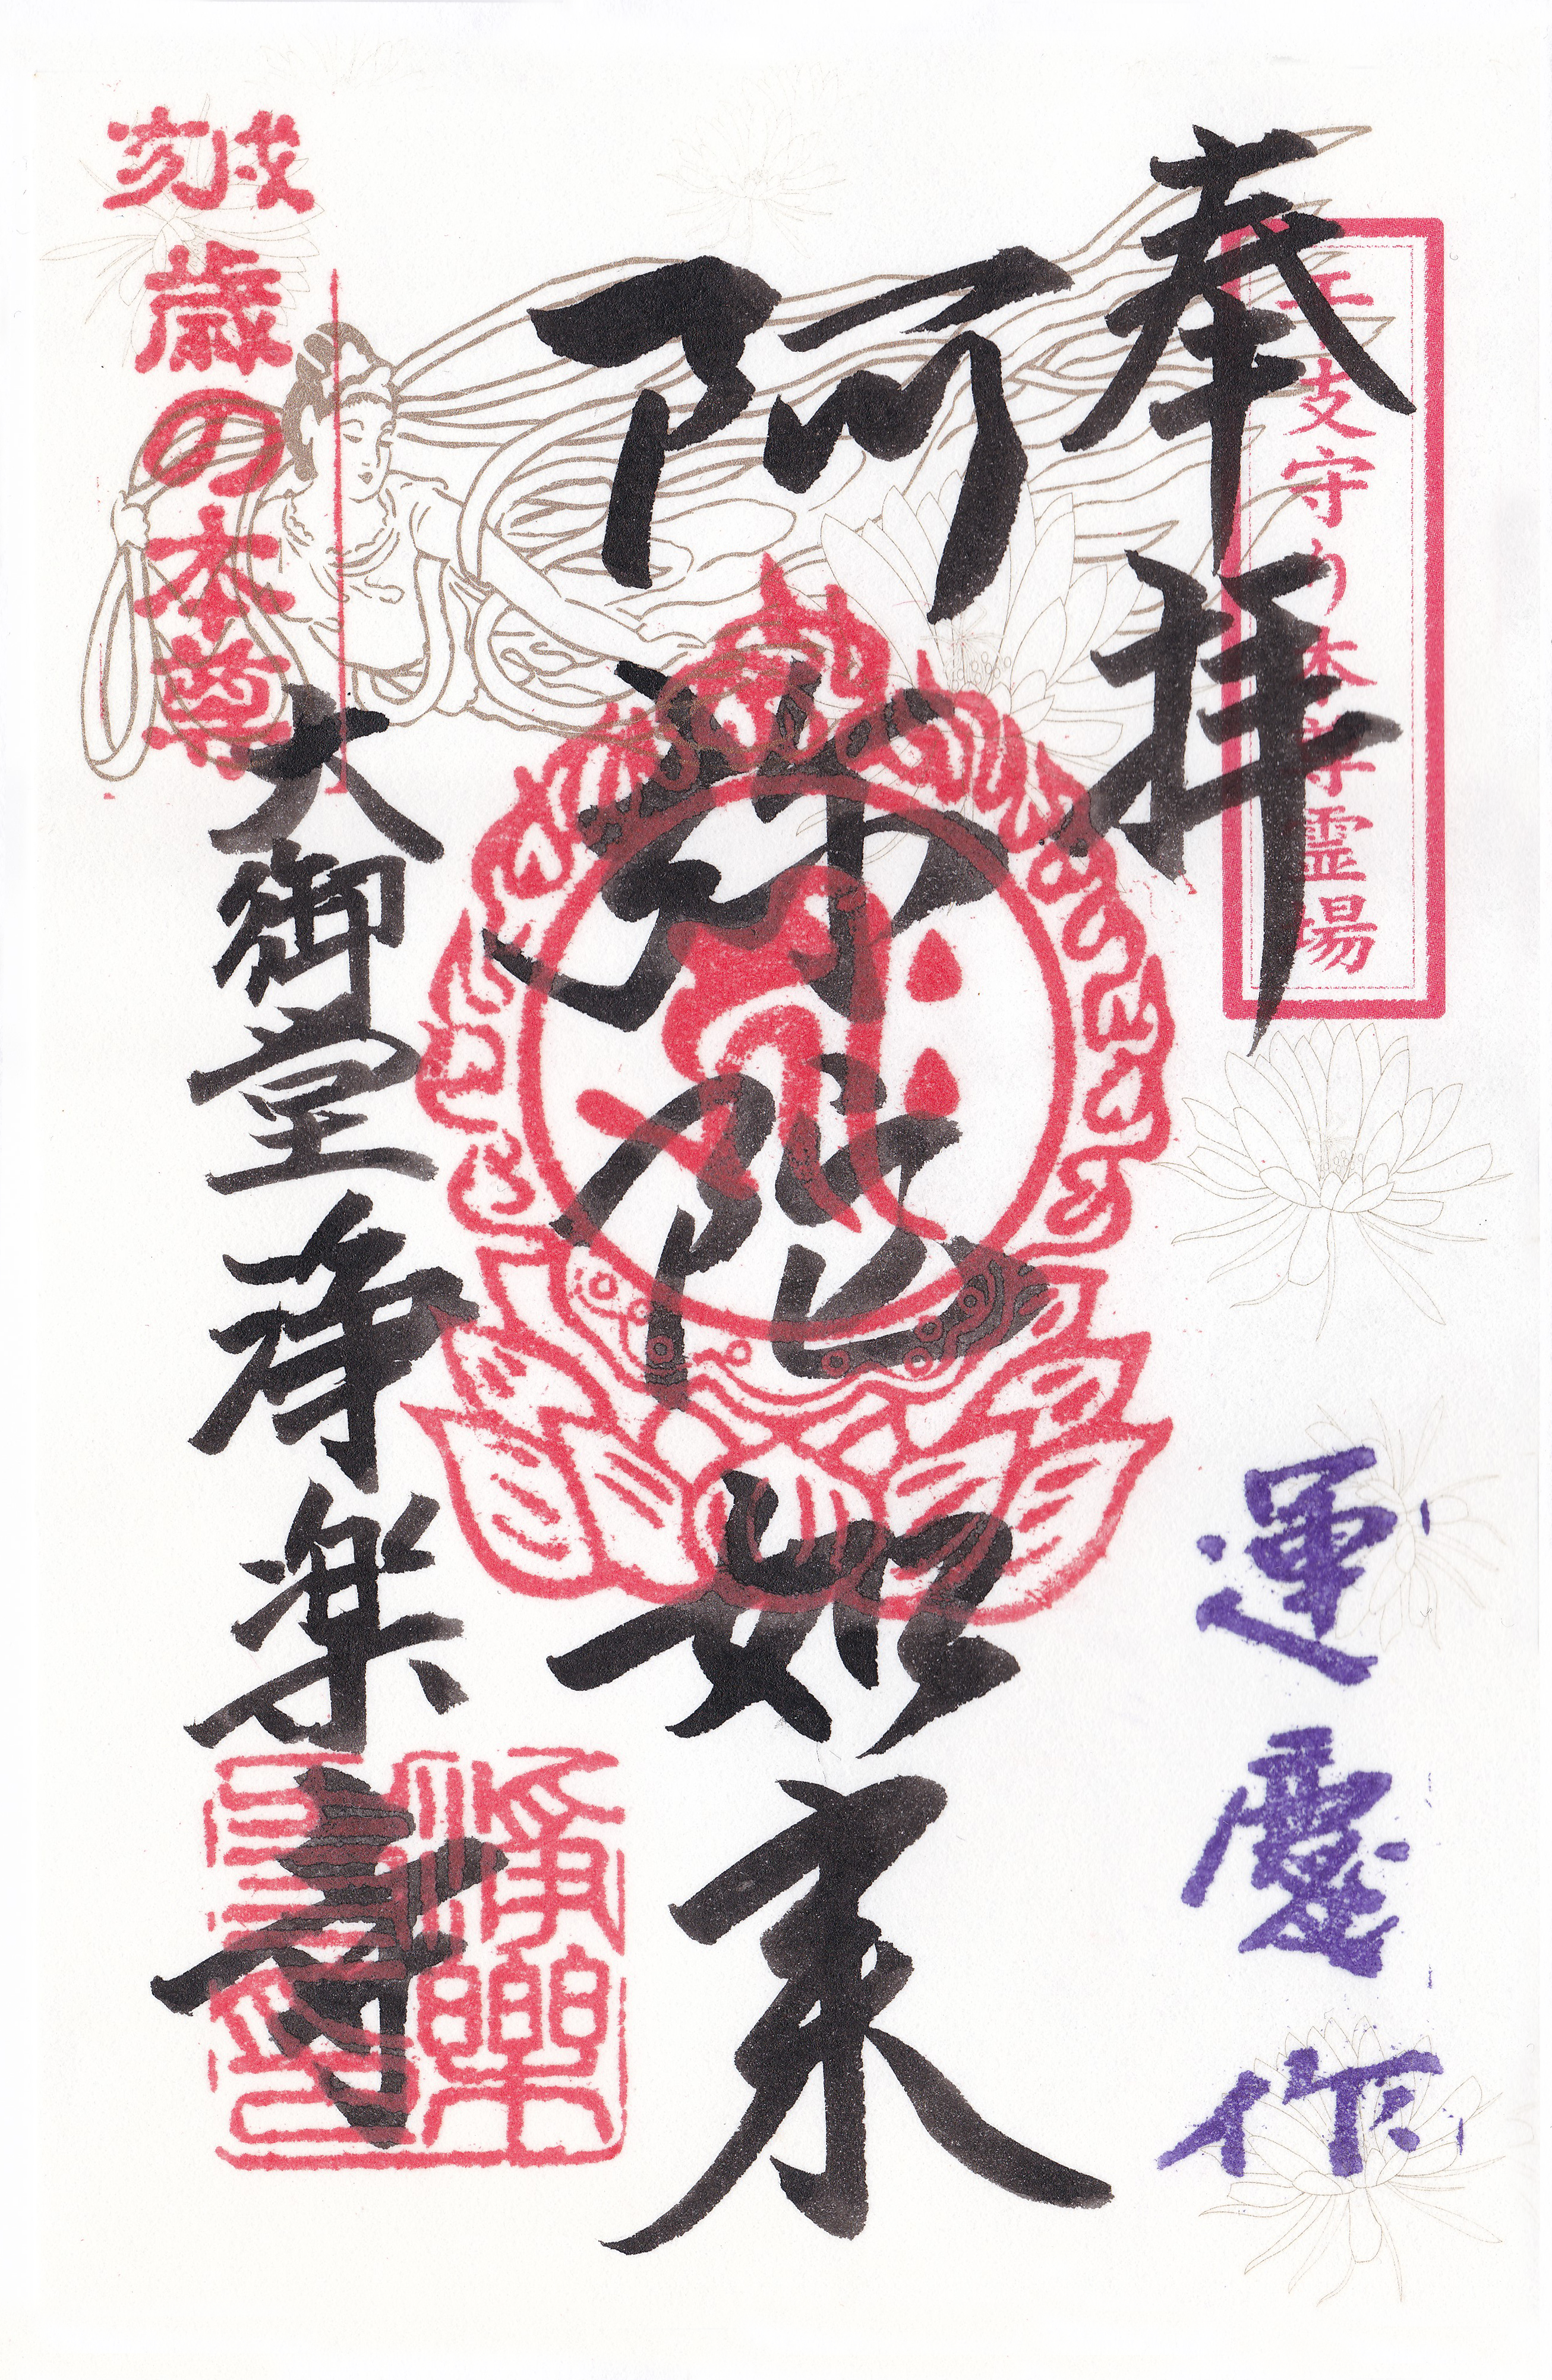 奉拝
干支守り本尊霊場
運慶作
阿弥陀如来
戌亥
歳の本尊
大御堂浄楽寺
浄楽